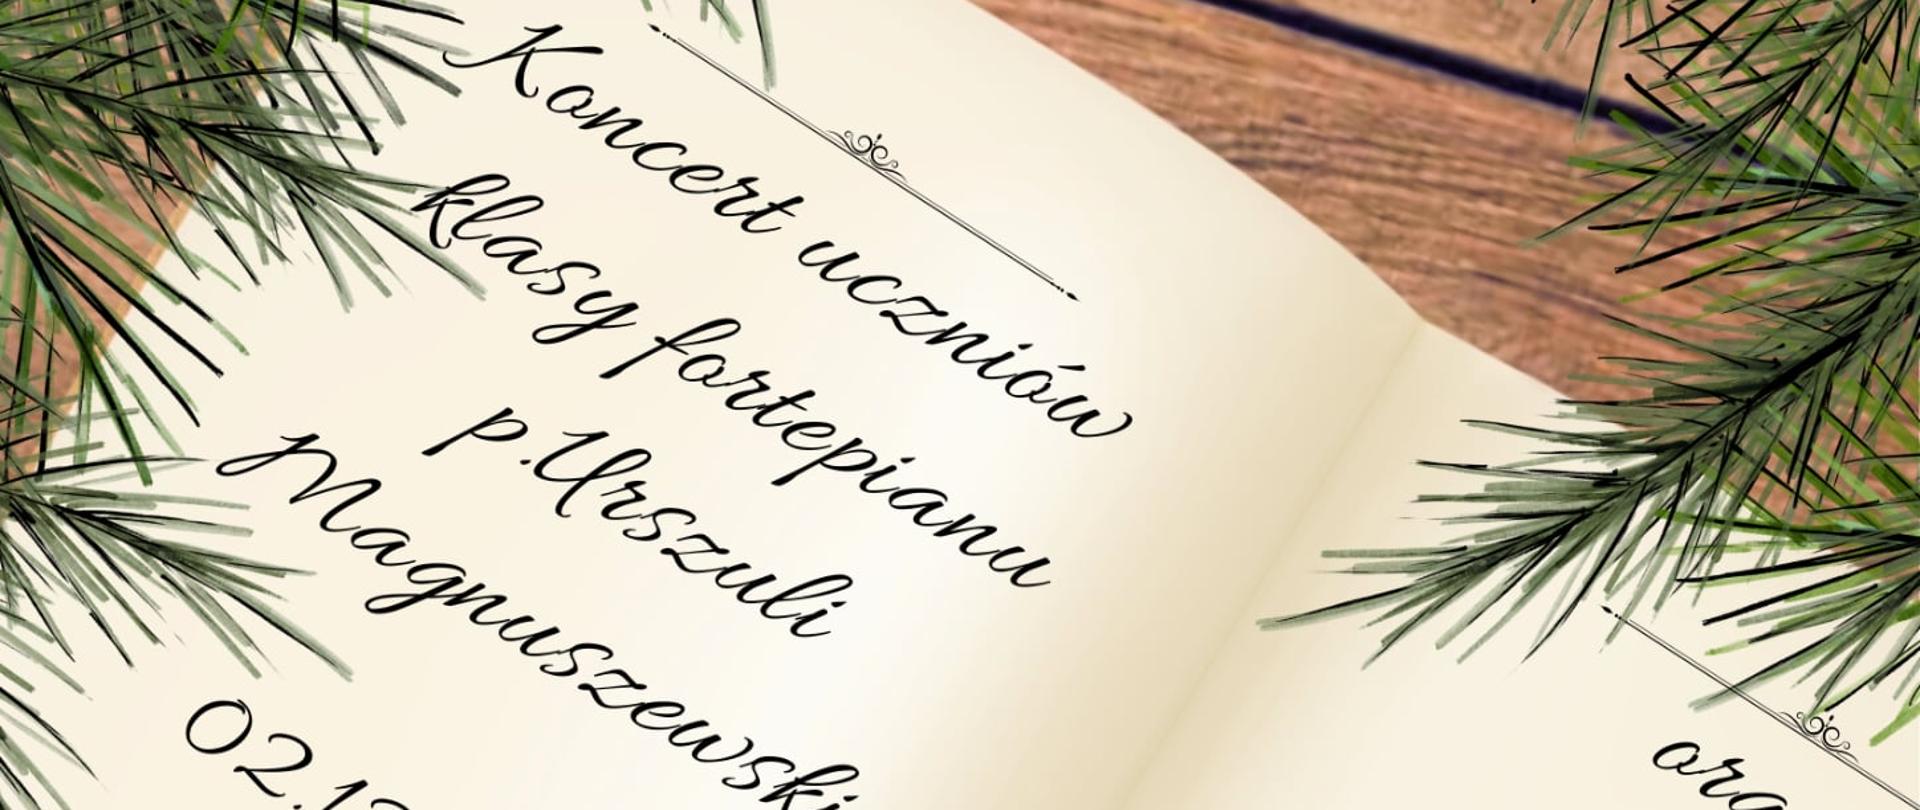 Koncert uczniów
klasy fortepianu
p.Urszuli
Magnuszewski
02.12
ora